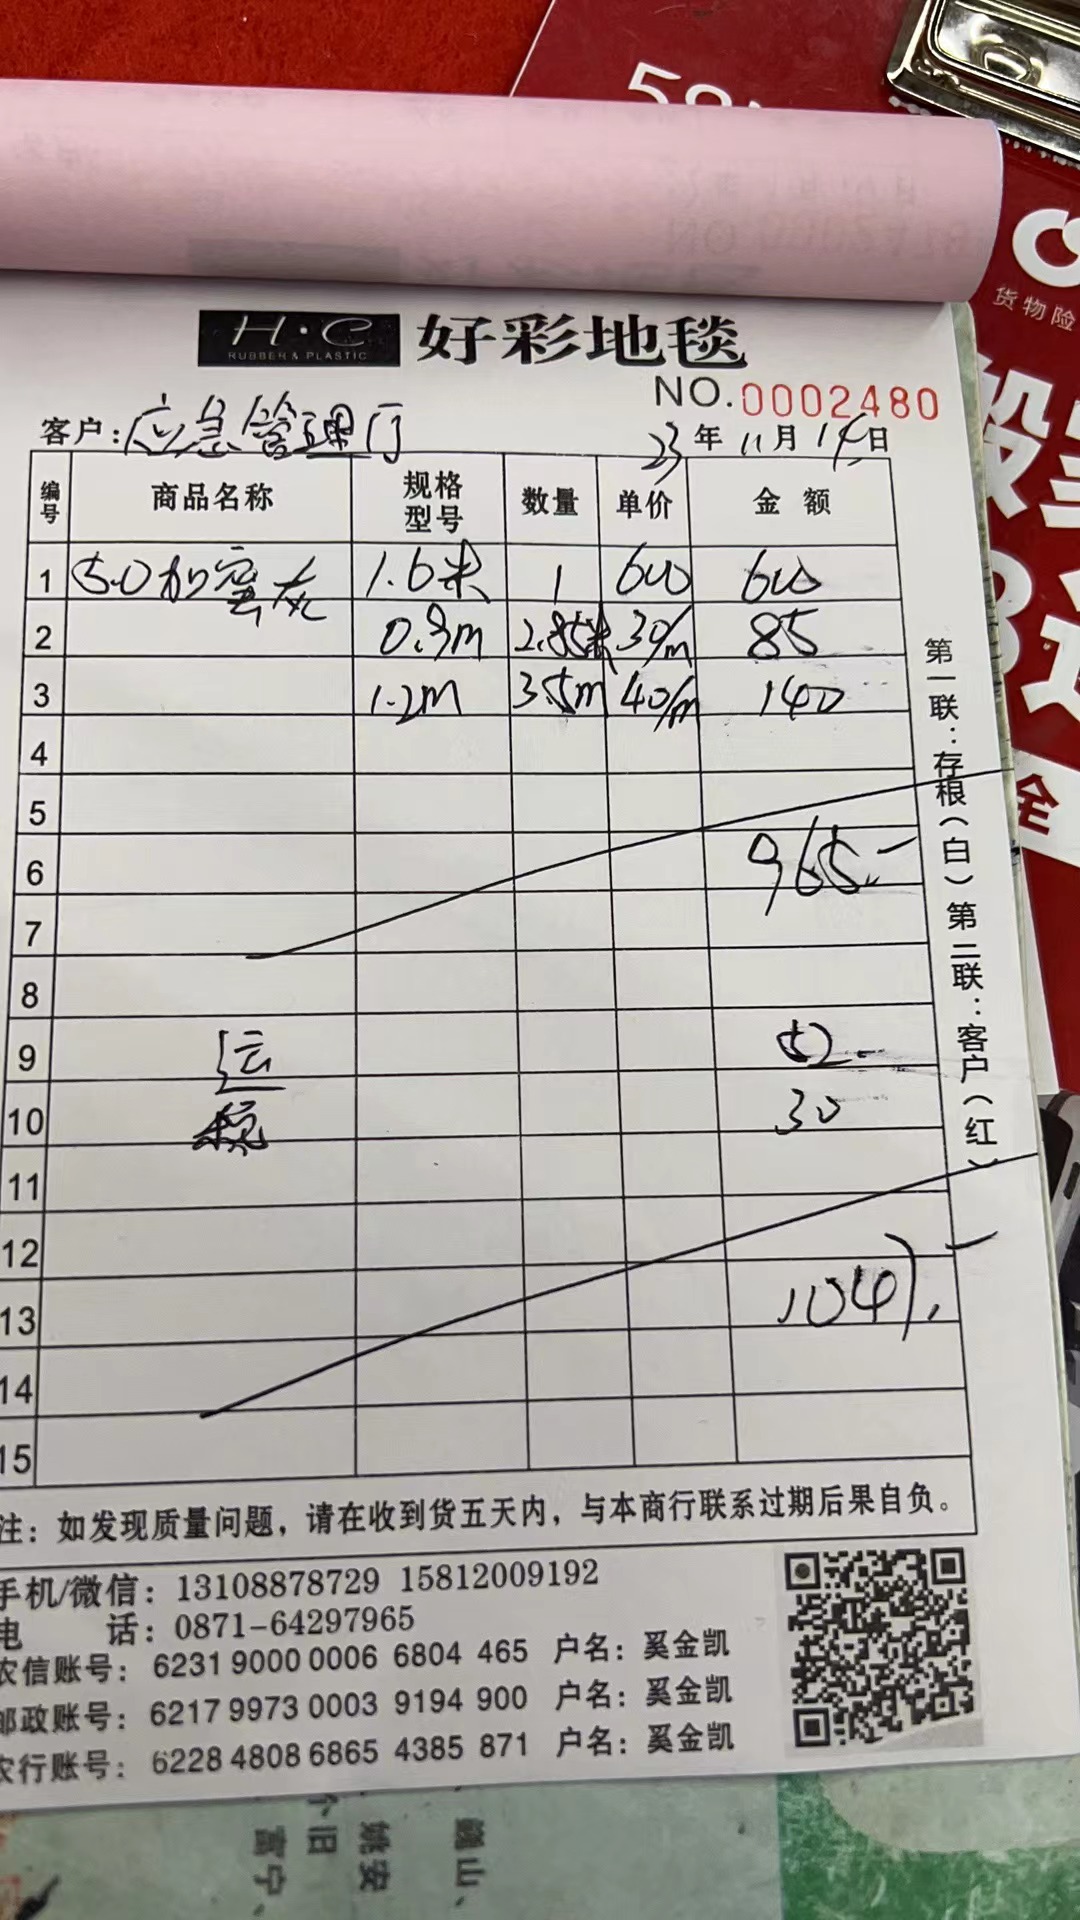 58
货物险
H·C
RUBBER & PLASTIC
好彩地毯
NO.0002480
客户:应急管理厅 23年11月14日
编号 商品名称 规格型号 数量 单价 金额
1 5.0加密灰 1.6米 1 600 600
2 0.9m 2.85米 30/m 85
3 1.2m 3.5m 40/m 140
4
5
6 965.-
7
8
9 运 52.-
10 税 30
11
12
13 1047.-
14
15
第一联:存根(白)第二联:客户(红)
注:如发现质量问题,请在收到货五天内,与本商行联系过期后果自负。
手机/微信:13108878729 15812009192
电 话:0871-64297965
农信账号:6231 9000 0006 6804 465 户名:奚金凯
邮政账号:6217 9973 0003 9194 900 户名:奚金凯
农行账号:6228 4808 6865 4385 871 户名:奚金凯
全
巍山、
姚安
个旧
富宁、